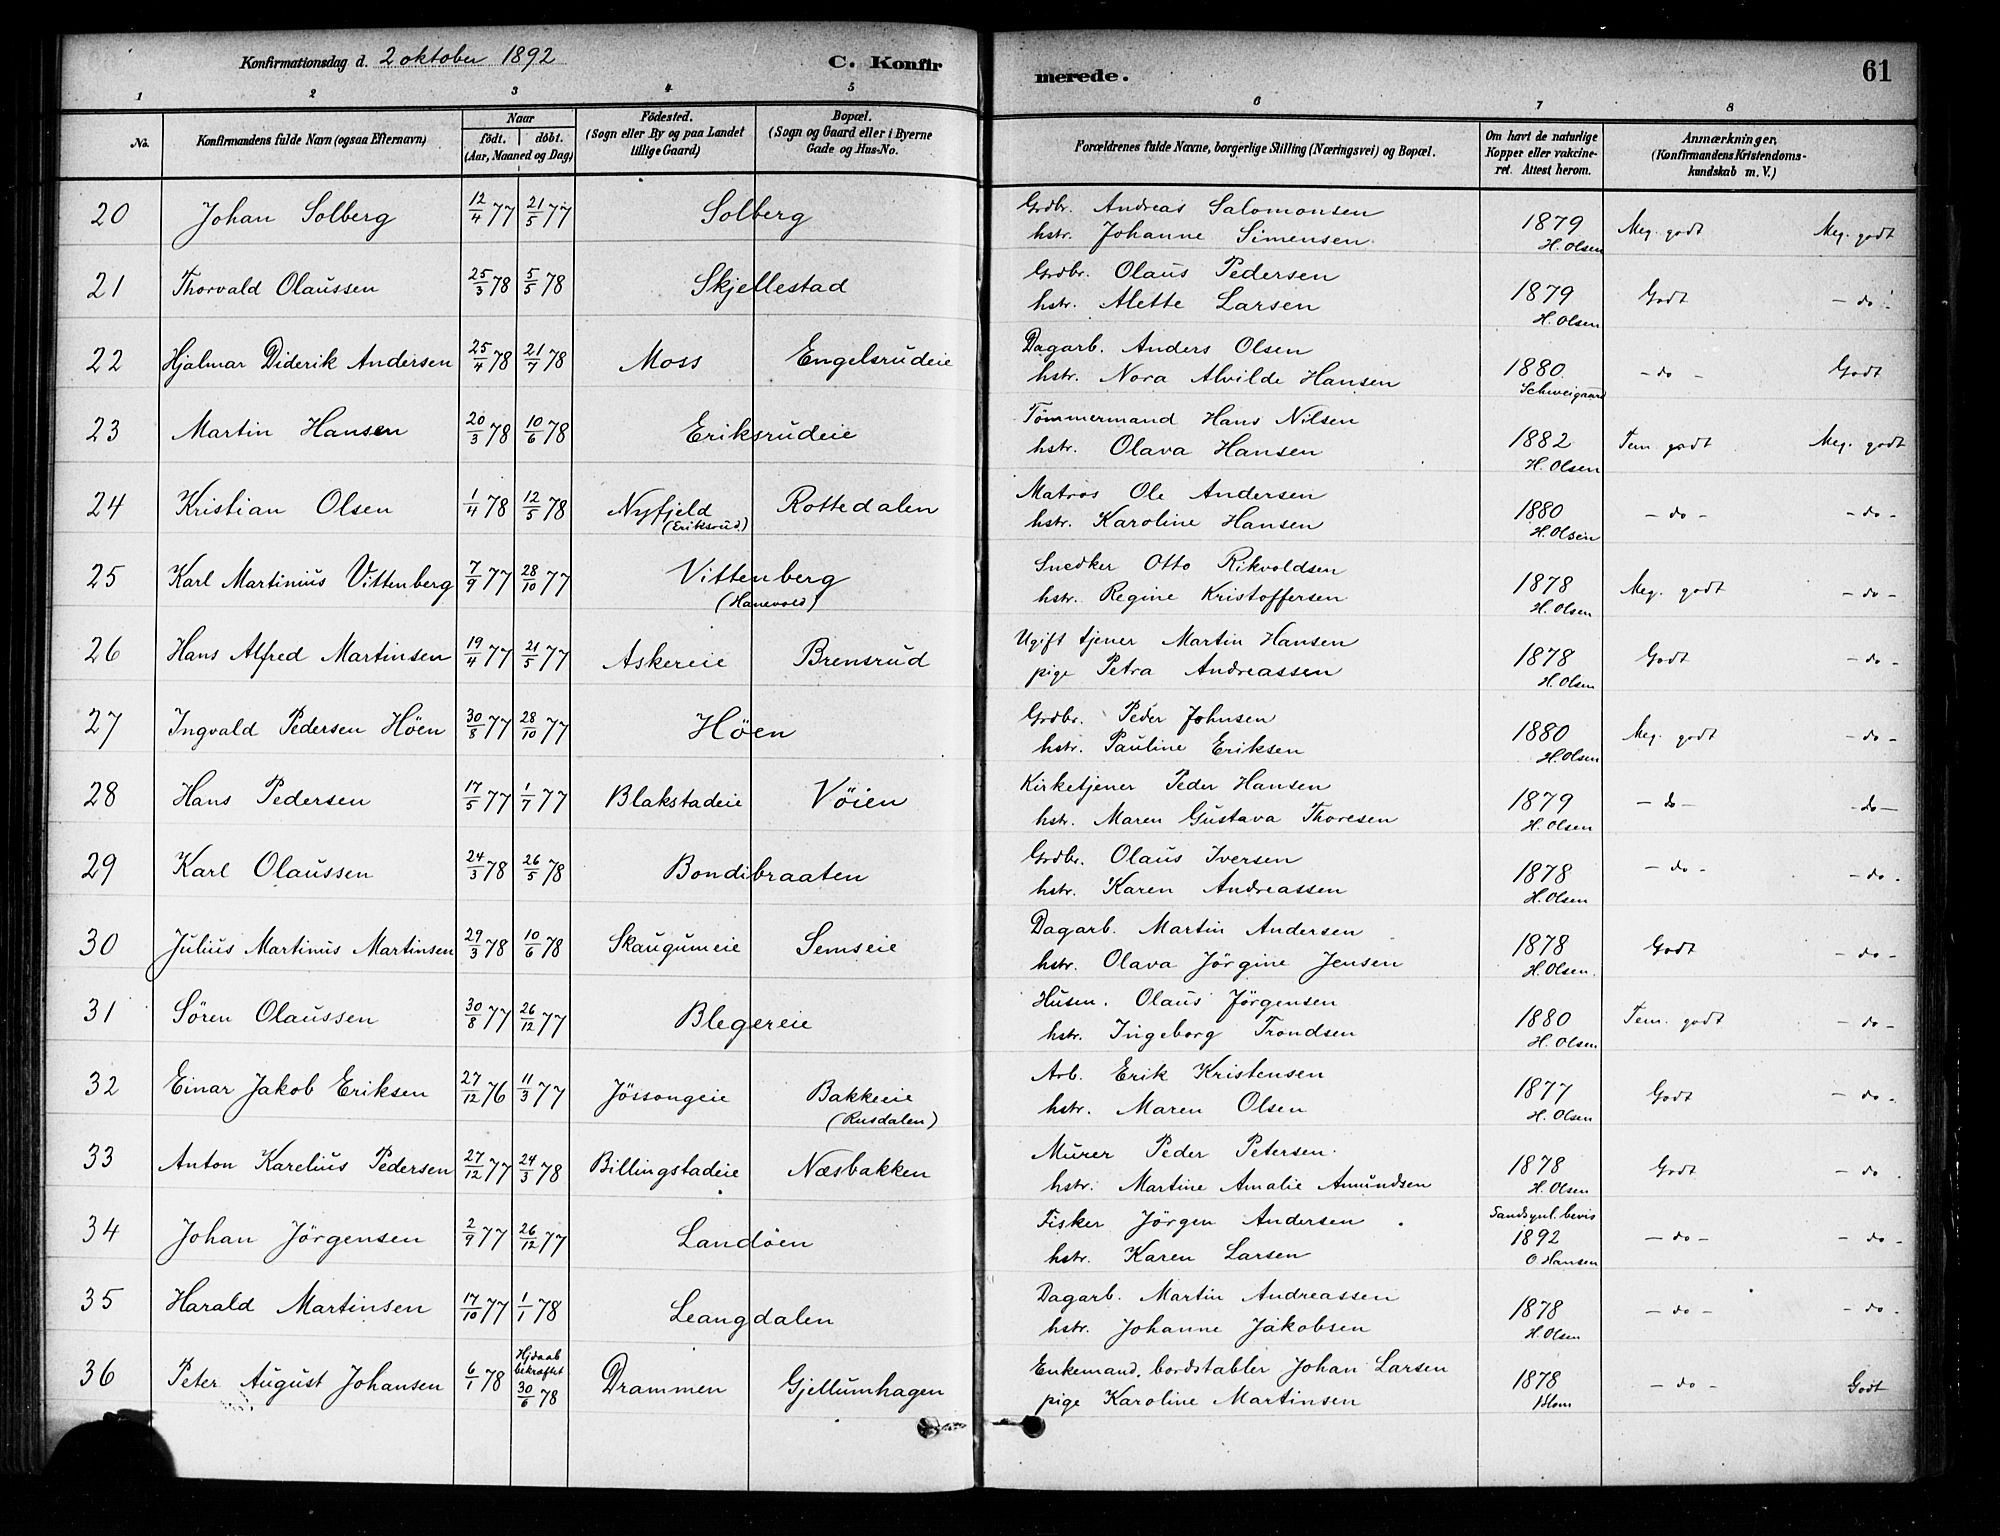 Konfirmationsdag d. 2 oktober 1892 C. Konfirmerede. 61
1 2 3 4 5 6 7 8
No. Konfirmandens fulde Navn (ogsaa Efternavn) Naar födt. döbt. (Aar, Maaned og Dag) Födested. (Sogn eller By og paa Landet tillige Gaard) Bopæl. (Sogn og Gaard eller i Byerne Gade og Hus-No. Forældrenes fulde Navne, borgerlige Stilling (Næringsvei) og Bopæl. Om havt de naturlige Kopper eller vakcineret. Attest herom. Anmærkninger, (Konfirmandens Kristendomskundskab m. V.)
20 Johan Solberg 12/4 77 21/5 77 Solberg Grdbr. Andreas Salomonsen 1879 Meg. godt Meg. godt
hstr. Johanne Simensen H. Olsen
21 Thorvald Olaussen 25/3 78 5/5 78 Skjellestad Grdbr. Olaus Pedersen 1879 Godt - do -
hstr. Alette Larsen H. Olsen
22 Hjalmar Diderik Andersen 25/4 78 21/7 78 Moss Engelsrudeie Dagarb. Anders Olsen 1880 - do - Godt
hstr. Nora Alvilde Hansen Schweigaard
23 Martin Hansen 20/3 78 10/6 78 Eriksrudeie Tømmermand Hans Nilsen 1882 Tem. godt Meg. godt
hstr. Olava Hansen H. Olsen
24 Kristian Olsen 1/4 78 12/5 78 Nyfjeld (Eriksrud) Rottedalen Matros Ole Andersen 1880 - do - - do -
hstr. Karoline Hansen H. Olsen
25 Karl Martinius Vittenberg 7/9 77 28/10 77 Vittenberg (Hanevold) Snedker Otto Rikvoldsen 1878 Meg. godt - do -
hstr. Regine Kristoffersen H. Olsen
26 Hans Alfred Martinsen 19/4 77 21/5 77 Askereie Brensrud Ugift tjener Martin Hansen 1878 Godt - do -
pige Petra Andreassen H. Olsen
27 Ingvald Pedersen Höen 30/8 77 28/10 77 Höen Grdbr. Peder Johnsen 1880 Meg. godt - do -
hstr. Pauline Eriksen H. Olsen
28 Hans Pedersen 17/5 77 1/7 77 Blakstadeie Vöien Kirketjener Peder Hansen 1879 - do - - do -
hstr. Maren Gustava Thoresen H. Olsen
29 Karl Olaussen 24/3 78 26/5 78 Bondibraaten Grdbr. Olaus Iversen 1878 - do - - do -
hstr. Karen Andreassen H. Olsen
30 Julius Martinus Martinsen 29/3 78 10/6 78 Skaugumeie Semseie Dagarb. Martin Andersen 1878 Godt - do -
hstr. Olava Jörgine Jensen H. Olsen
31 Sören Olaussen 30/8 77 26/12 77 Blegereie Husm. Olaus Jörgensen 1880 Tem. godt - do -
hstr. Ingeborg Trondsen H. Olsen
32 Einar Jakob Eriksen 27/12 76 11/3 77 Jössongeie Bakkeie (Rusdalen) Arb. Erik Kristensen 1877 Godt - do -
hstr. Maren Olsen H. Olsen
33 Anton Karelius Pedersen 27/12 77 24/3 78 Billingstadeie Næsbakken Murer Peder Petersen 1878 Godt - do -
hstr. Martine Amalie Amundsen H. Olsen
34 Johan Jörgensen 2/9 77 26/12 77 Landöen Fisker Jörgen Andersen Sandsynl. bevis 1892 - do - - do -
hstr. Karen Larsen O. Hansen
35 Harald Martinsen 17/10 77 1/1 78 Leangdalen Dagarb. Martin Andreassen 1878 - do - - do -
hstr. Johanne Jakobsen H. Olsen
36 Peter August Johansen 6/1 78 Hjdaab bekræftet 30/6 78 Drammen Gjellumhagen Enkemand, bordstabler Johan Larsen 1878 - do - Godt
pige Karoline Martinsen Blom